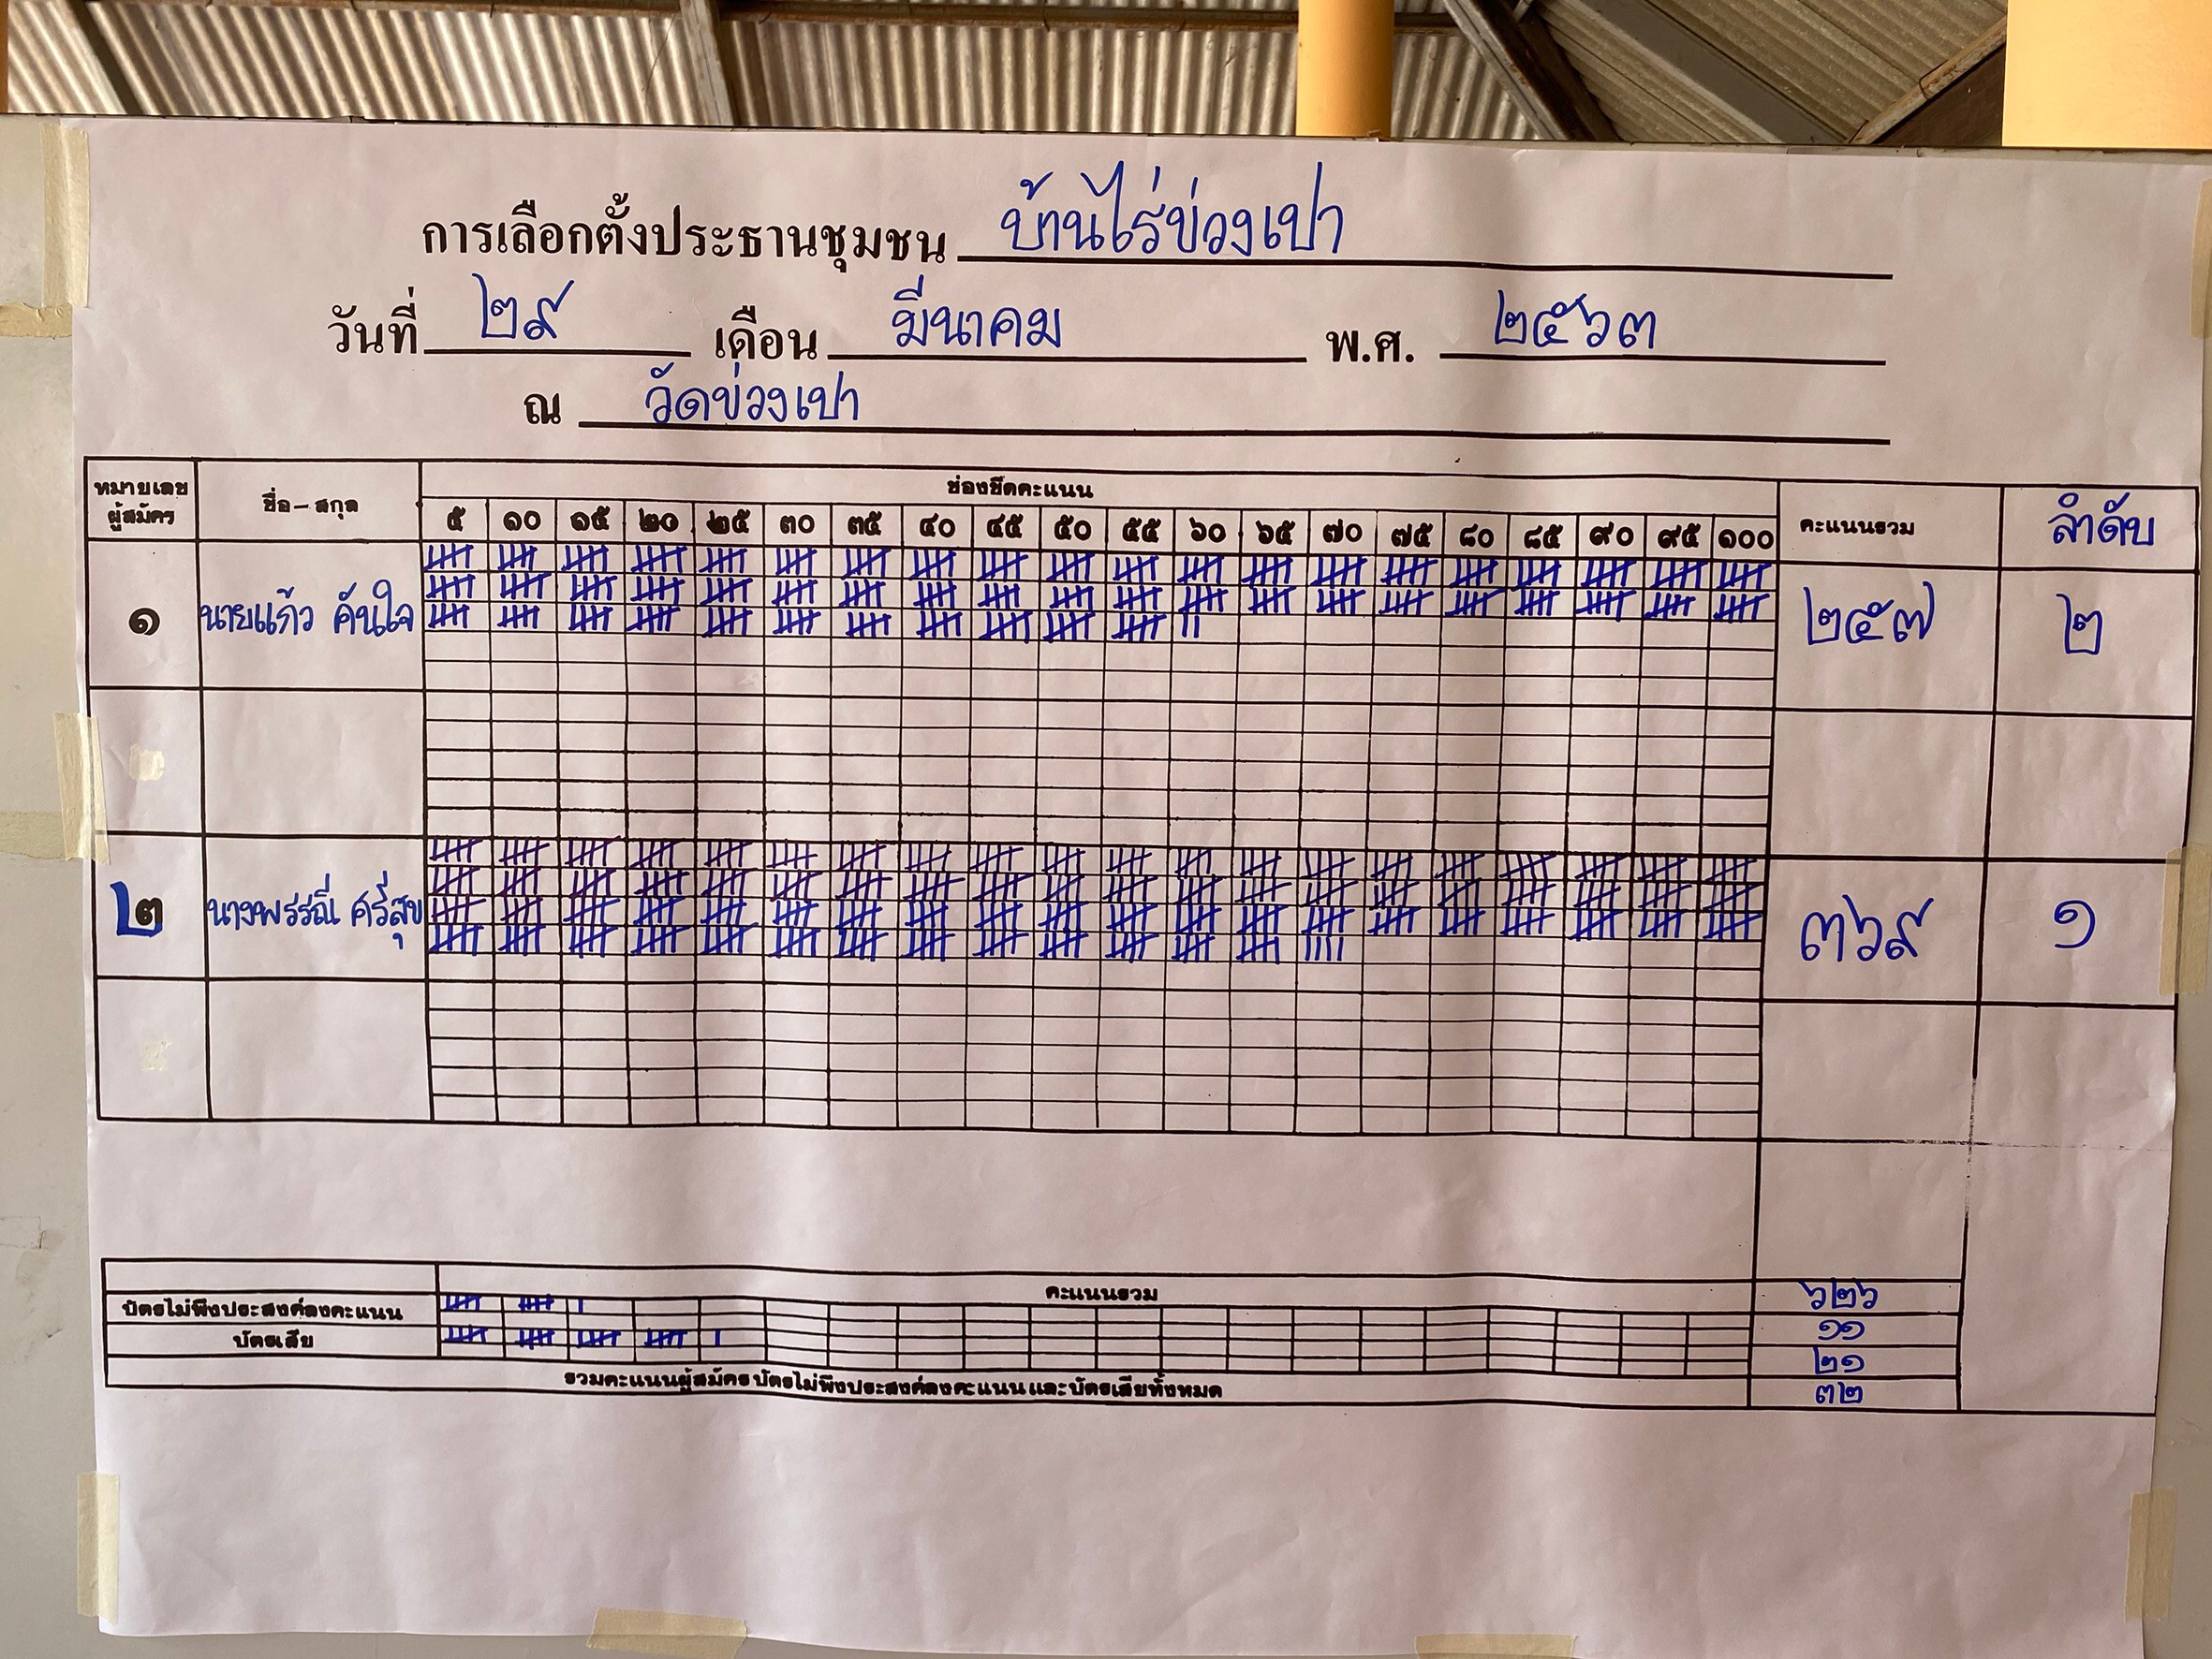 การเลือกตั้งประธานชุมชน บ้านไร่ข่วงเปา
วันที่ ๒๙ เดือน มีนาคม พ.ศ. ๒๕๖๓
ณ วัดข่วงเปา
หมายเลขผู้สมัคร ชื่อ-สกุล ช่องขีดคะแนน คะแนนรวม ลำดับ
๕ ๑๐ ๑๕ ๒๐ ๒๕ ๓๐ ๓๕ ๔๐ ๔๕ ๕๐ ๕๕ ๖๐ ๖๕ ๗๐ ๗๕ ๘๐ ๘๕ ๙๐ ๙๕ ๑๐๐
๑ นายแก้ว คันใจ ๒๕๗ ๒
๒ นางพรรณี ศรีสุข ๓๖๙ ๑
คะแนนรวม ๖๒๖
บัตรไม่พึงประสงค์ลงคะแนน ๑๑
บัตรเสีย ๒๑
รวมคะแนนผู้สมัคร บัตรไม่พึงประสงค์ลงคะแนน และบัตรเสียทั้งหมด ๓๒